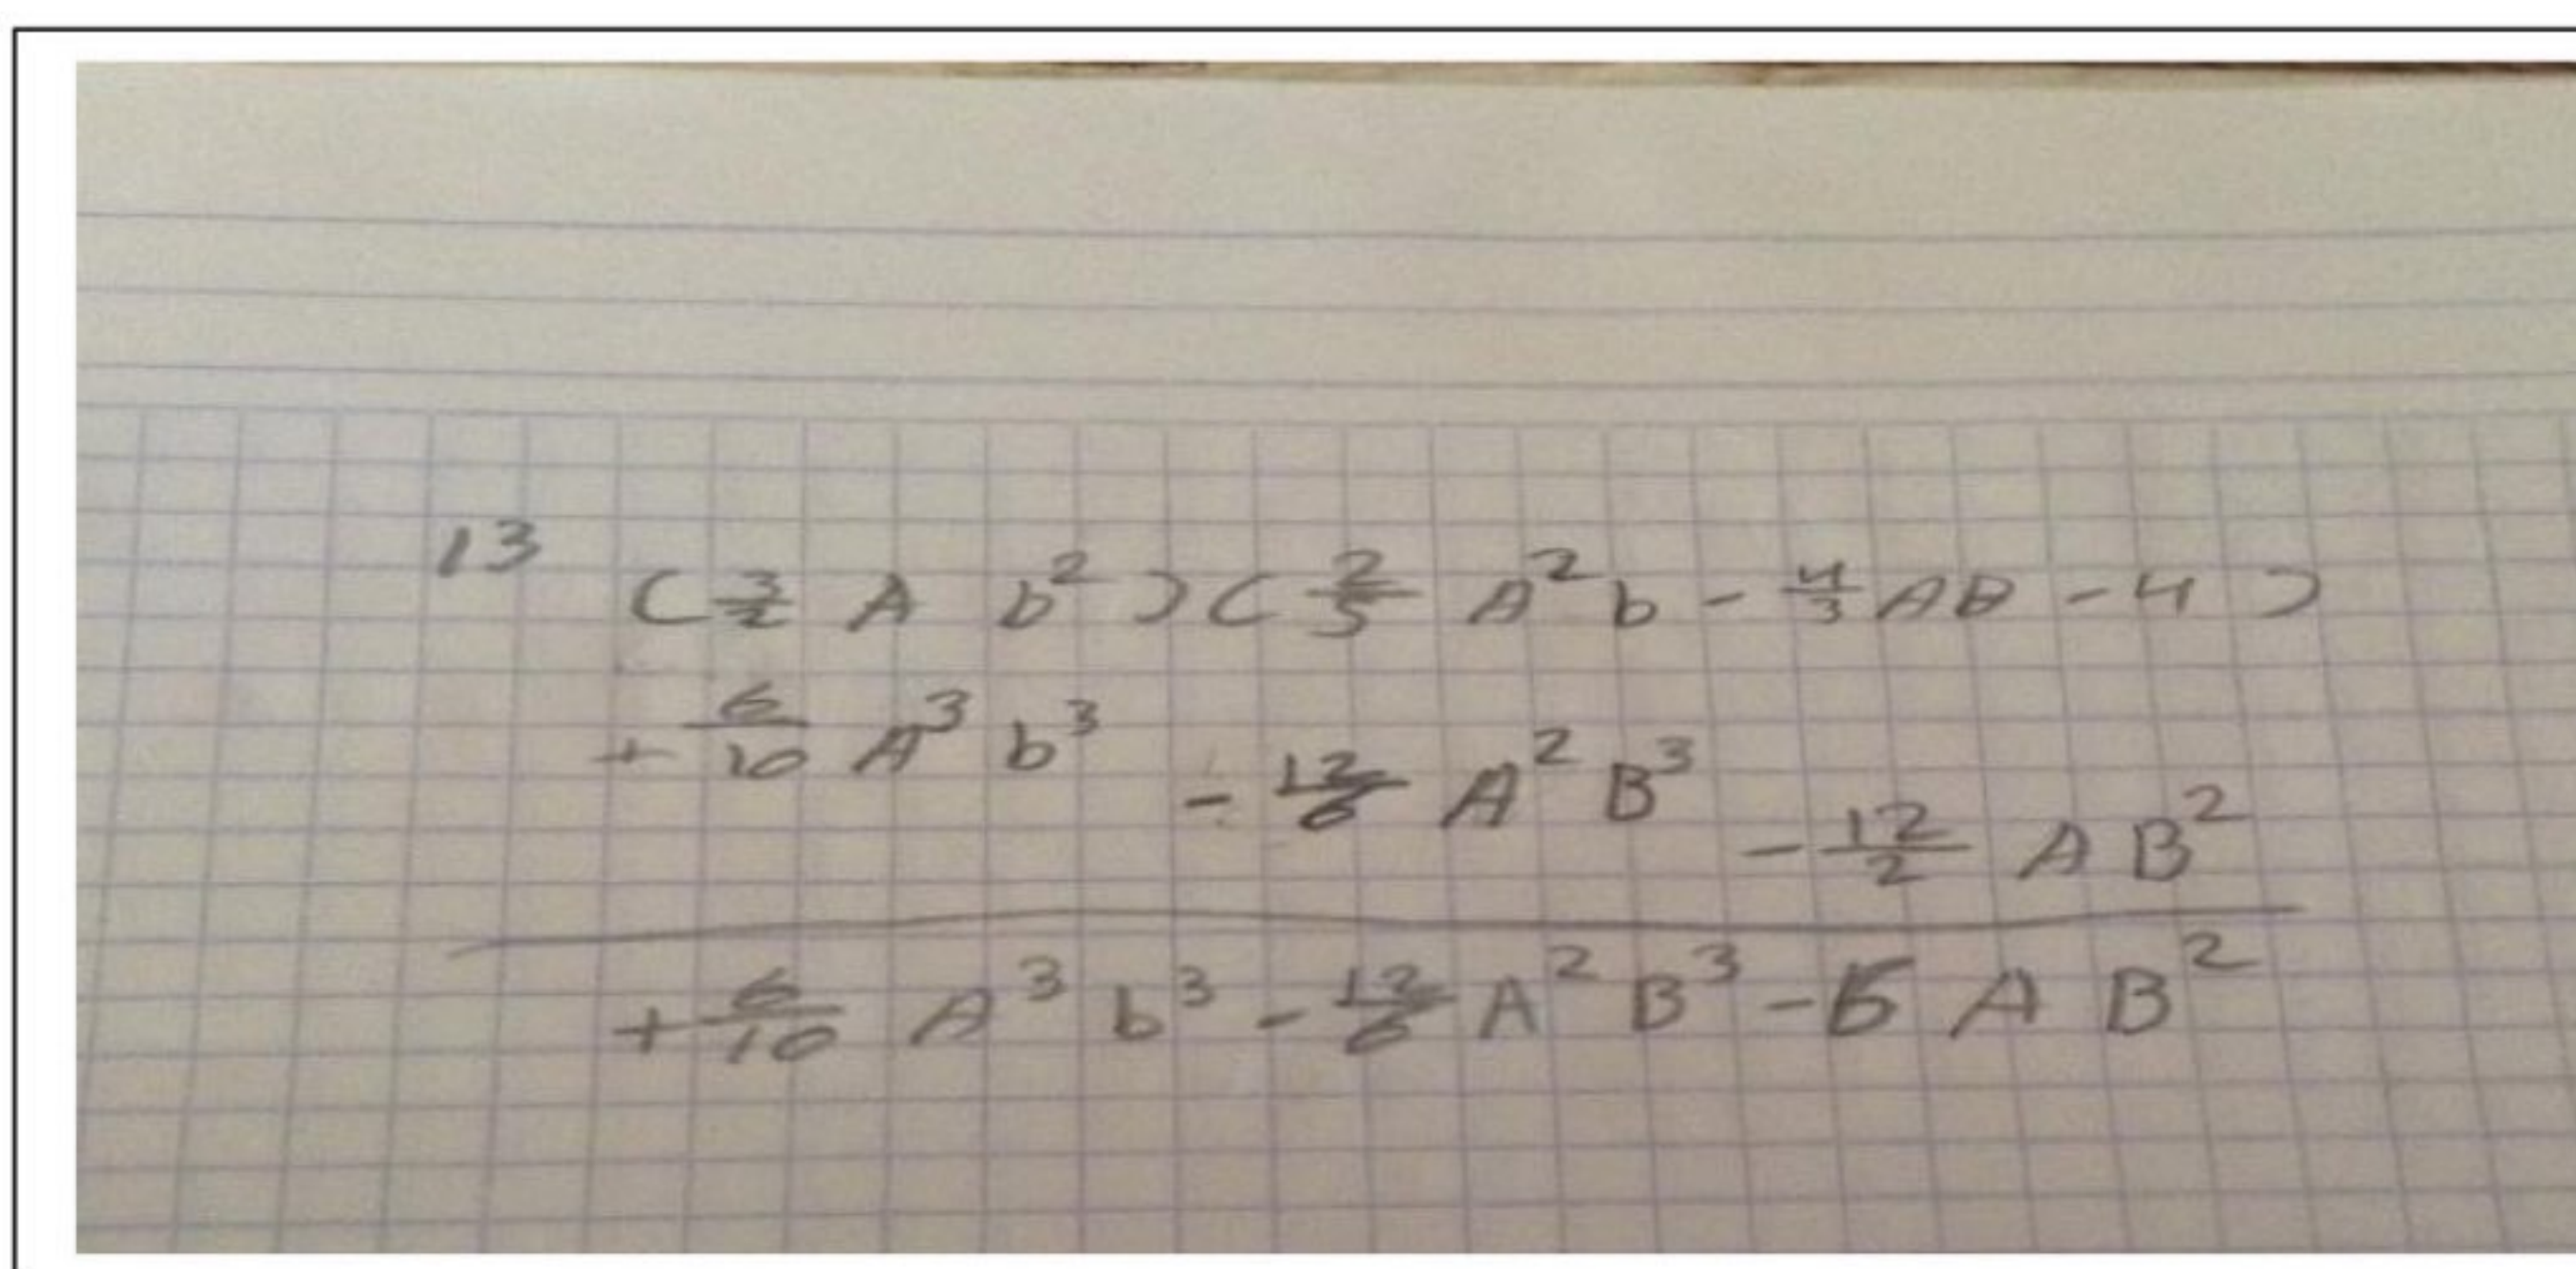 13 (3/2 A b²) (2/5 A²b - 4/3 AB - 4)
+ 6/10 A³ b³ - 12/6 A² B³ - 12/2 A B²
+ 6/10 A³ b³ - 12/6 A² B³ - 6 A B²